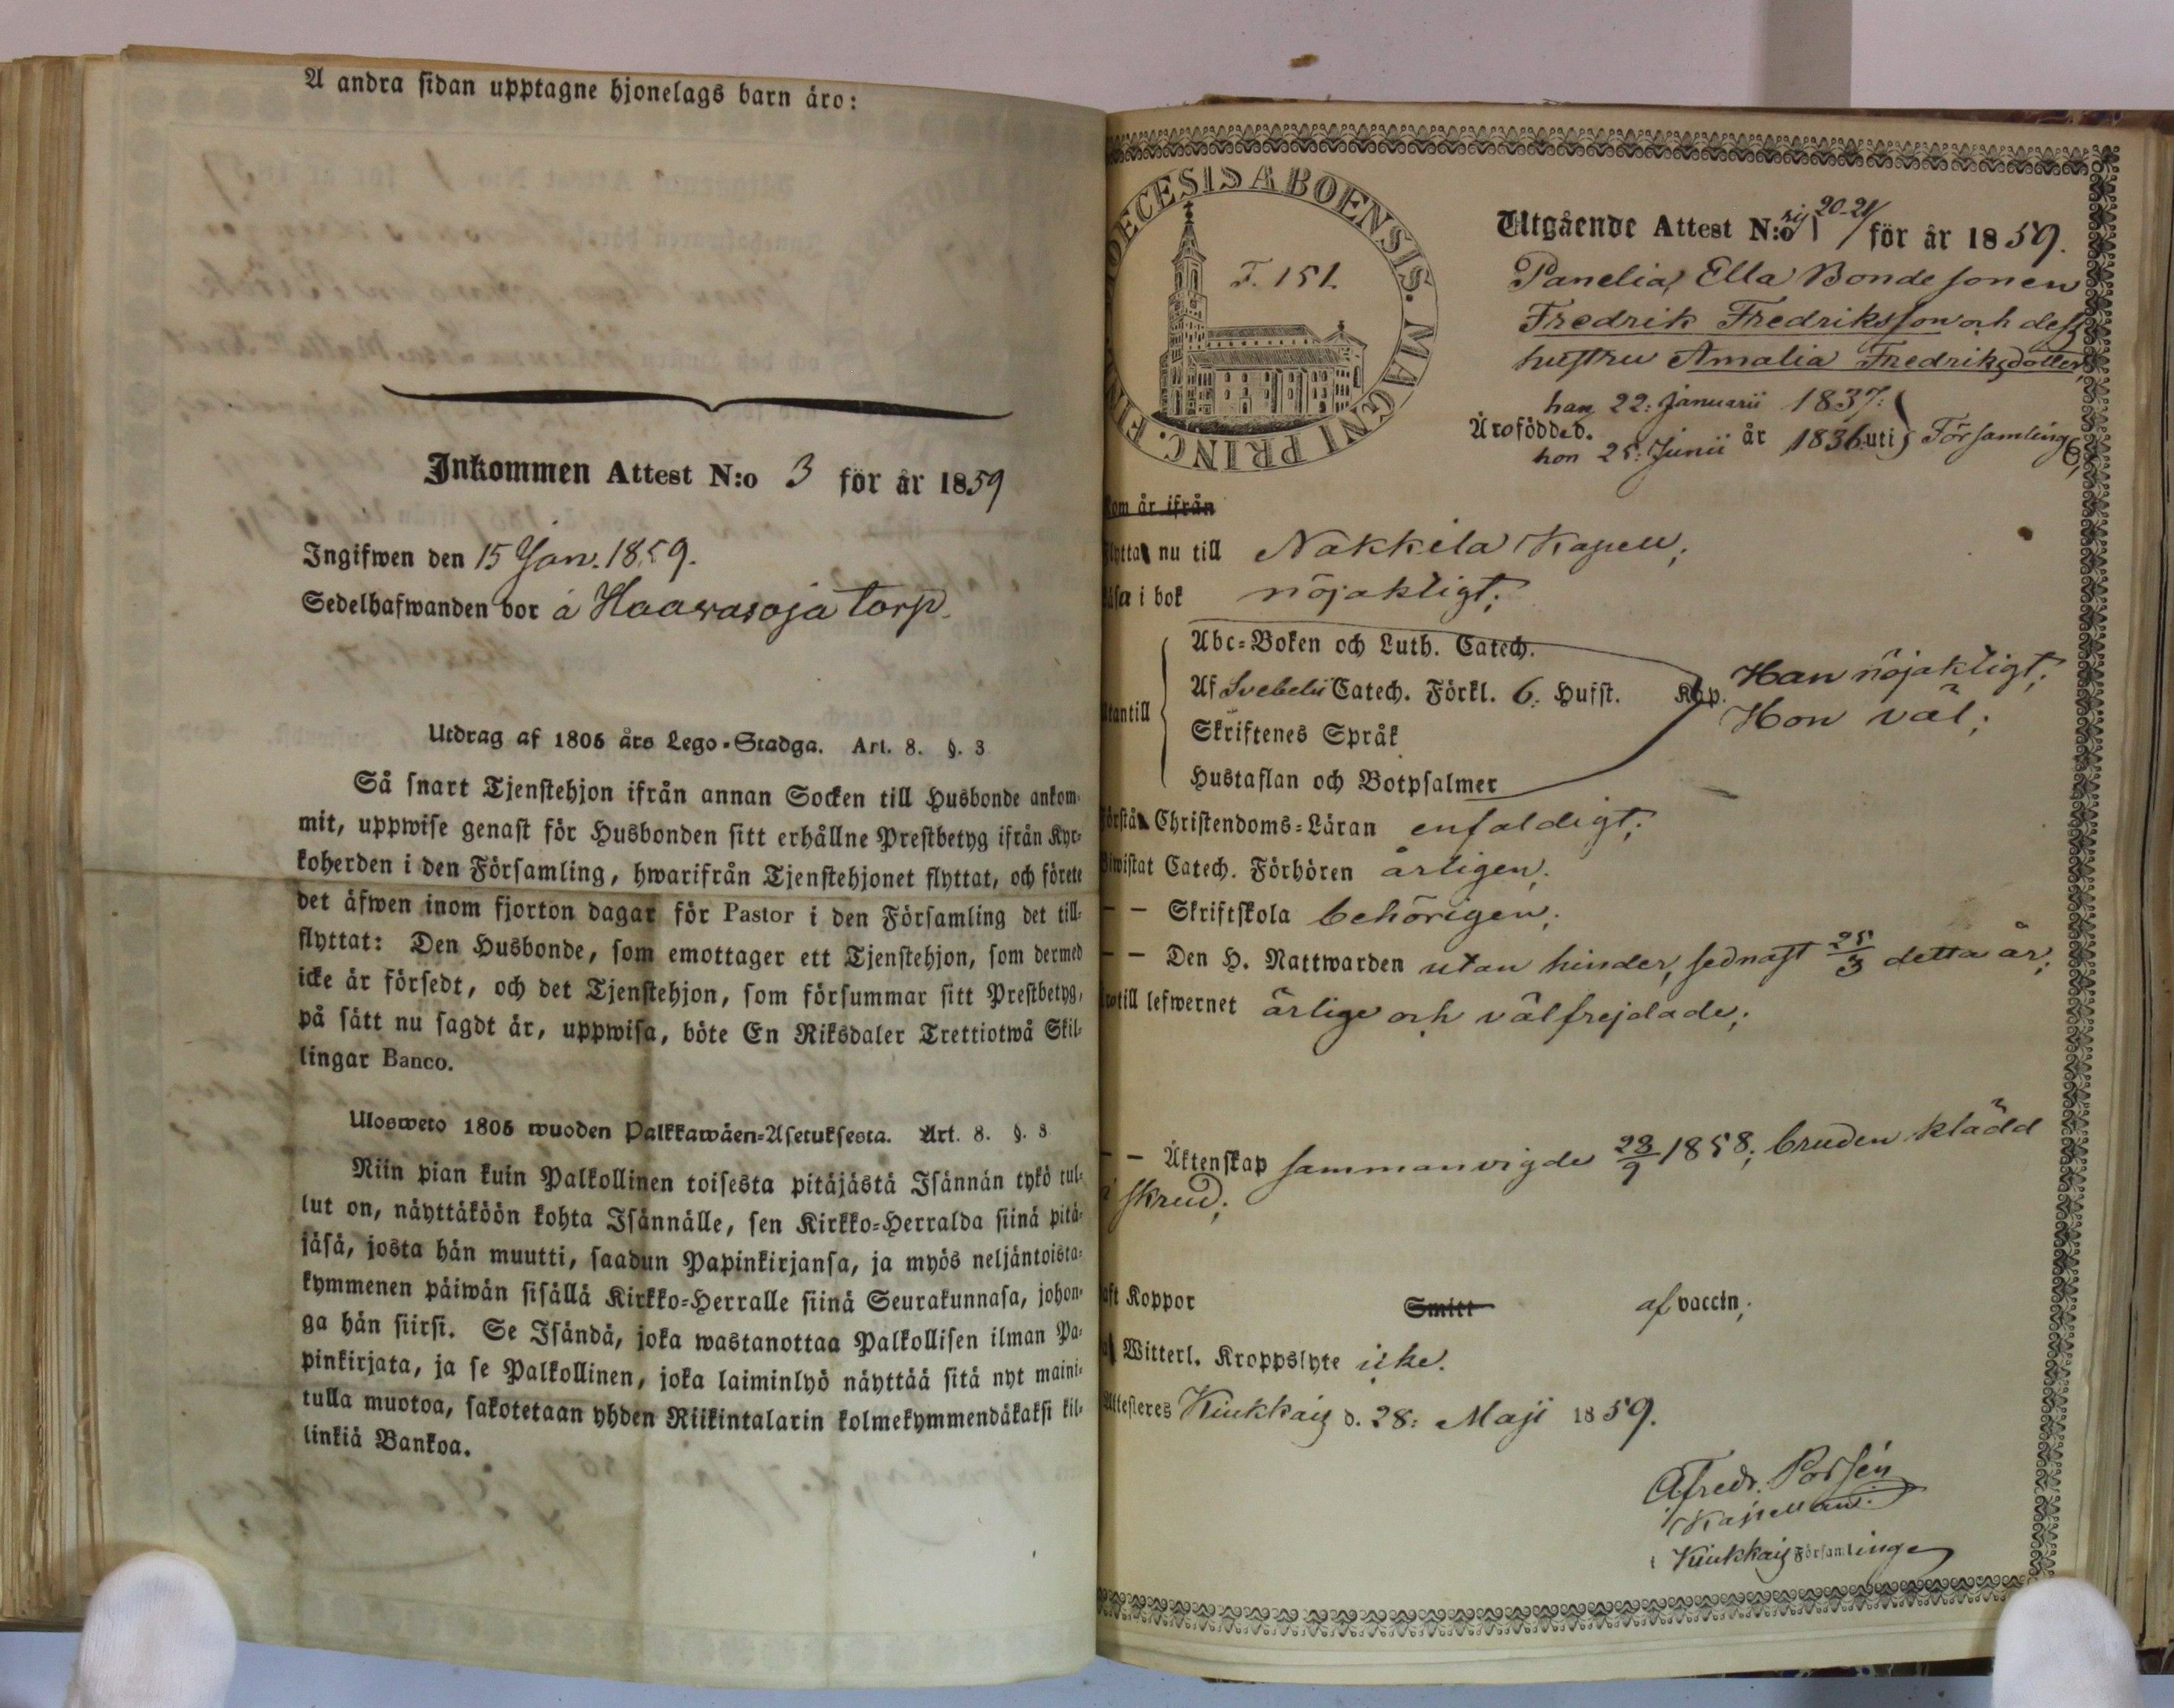 A andra sidan upptagne hjonelags barn äro:
Inkommen Attest N:o 3 för år 1859
Ingifwen den 15 Jan. 1859.
Sedelhafwanden bor å Haawasoja torp.
Utdrag af 1805 års Lego-Stadga. Art. 8. §. 3
Så snart Tjenstehjon ifrån annan Socken till Husbonde ankom-
mit, uppwise genast för Husbonden sitt erhållne Prestbetyg ifrån Kyr-
koherden i den Församling, hwarifrån Tjenstehjonet flyttat, och förete
det äfwen inom fjorton dagar för Pastor i den Församling det till-
flyttat: Den Husbonde, som emottager ett Tjenstehjon, som dermed
icke är försedt, och det Tjenstehjon, som försummar sitt Prestbetyg,
på sätt nu sagdt är, uppwisa, böte En Riksdaler Trettiotwå Skil-
lingar Banco.
Ulosweto 1805 wuoden Palkkawäen-Asetuksesta. Art. 8. §. 3
Niin pian kuin Palkollinen toisesta pitäjästä Isännän tykö tul-
lut on, näyttäköön kohta Isännälle, sen Kirkko-Herralda siinä pitä-
jäsä, josta hän muutti, saadun Papinkirjansa, ja myös neljäntoista-
kymmenen päiwän sisällä Kirkko-Herralle siinä Seurakunnasa, johon-
ga hän siirsi. Se Isändä, joka wastanottaa Palkollisen ilman Pa-
pinkirjata, ja se Palkollinen, joka laiminlyö näyttää sitä nyt maini-
tulla muotoa, sakotetaan yhden Riikintalarin kolmekymmendäkaksi kil-
linkiä Bankoa.
DIOECESIS ABOENSIS. MAGNI PRINC. FINL
F. 151.
Utgående Attest N:o 20-21 för år 1859.
Panelia, Ella Bondesonen
Fredrik Fredriksson och dess
hustru Amalia Fredriksdotter,
han 22: Januarii 1837:
Äro födde d. år uti Församling
hon 25: Junii 1836
kom år ifrån
flytta nu till Nakkila Kapell;
läsa i bok nöjaktigt;
Abc-Boken och Luth. Catech.
Af Svebelii Catech. Förkl. 6: Hufst. Kap. Han nöjaktigt;
Utantill Hon väl;
Skriftenes Språk
Hustaflan och Botpsalmer
Förstå Christendoms-Läran enfaldigt;
Biwistat Catech. Förhören årligen;
— — Skriftskola behörigen;
— — Den H. Nattwarden utan hinder, sednast 25/3 detta år;
till lefwernet ärlige och välfrejdade;
— — Äktenskap sammanvigde 28/9 1858; bruden klädd
i skrud;
haft Koppor Smitt af vaccin;
Witterl. Kroppslyte icke.
Attesteres Kiukkais d. 28: Maji 1859.
Alfredr. Porsén
Kapellan.
i Kiukkais Församlinge